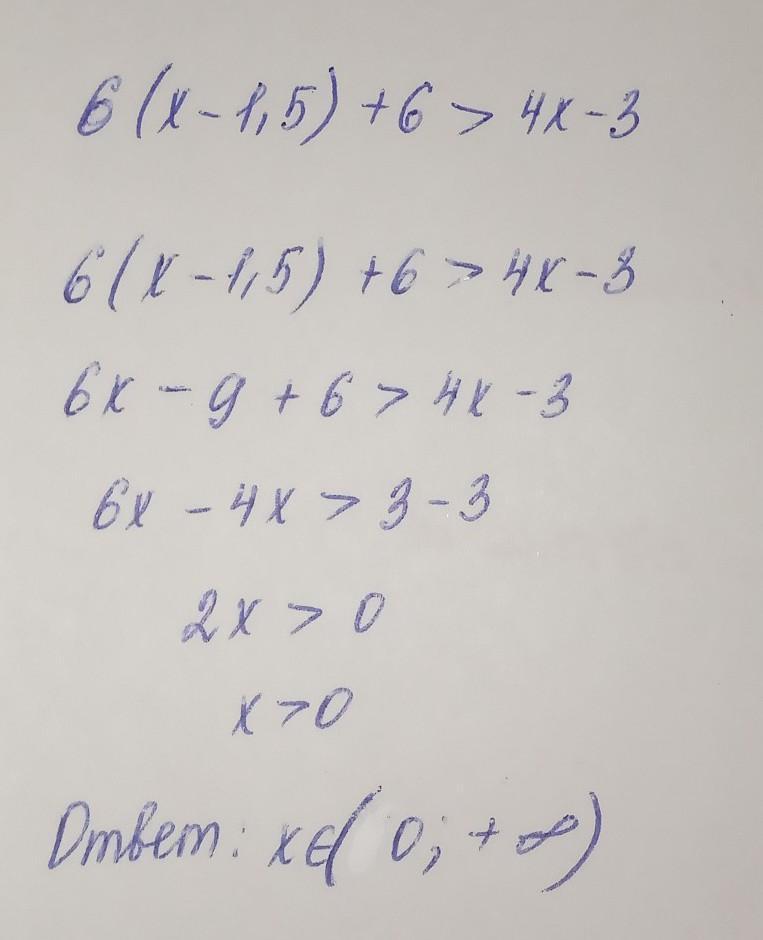 6(x-1,5)+6 > 4x-3
6(x-1,5)+6 > 4x-3
6x - 9 + 6 > 4x - 3
6x - 4x > 3 - 3
2x > 0
x > 0
Ответ: x∈(0; +∞)